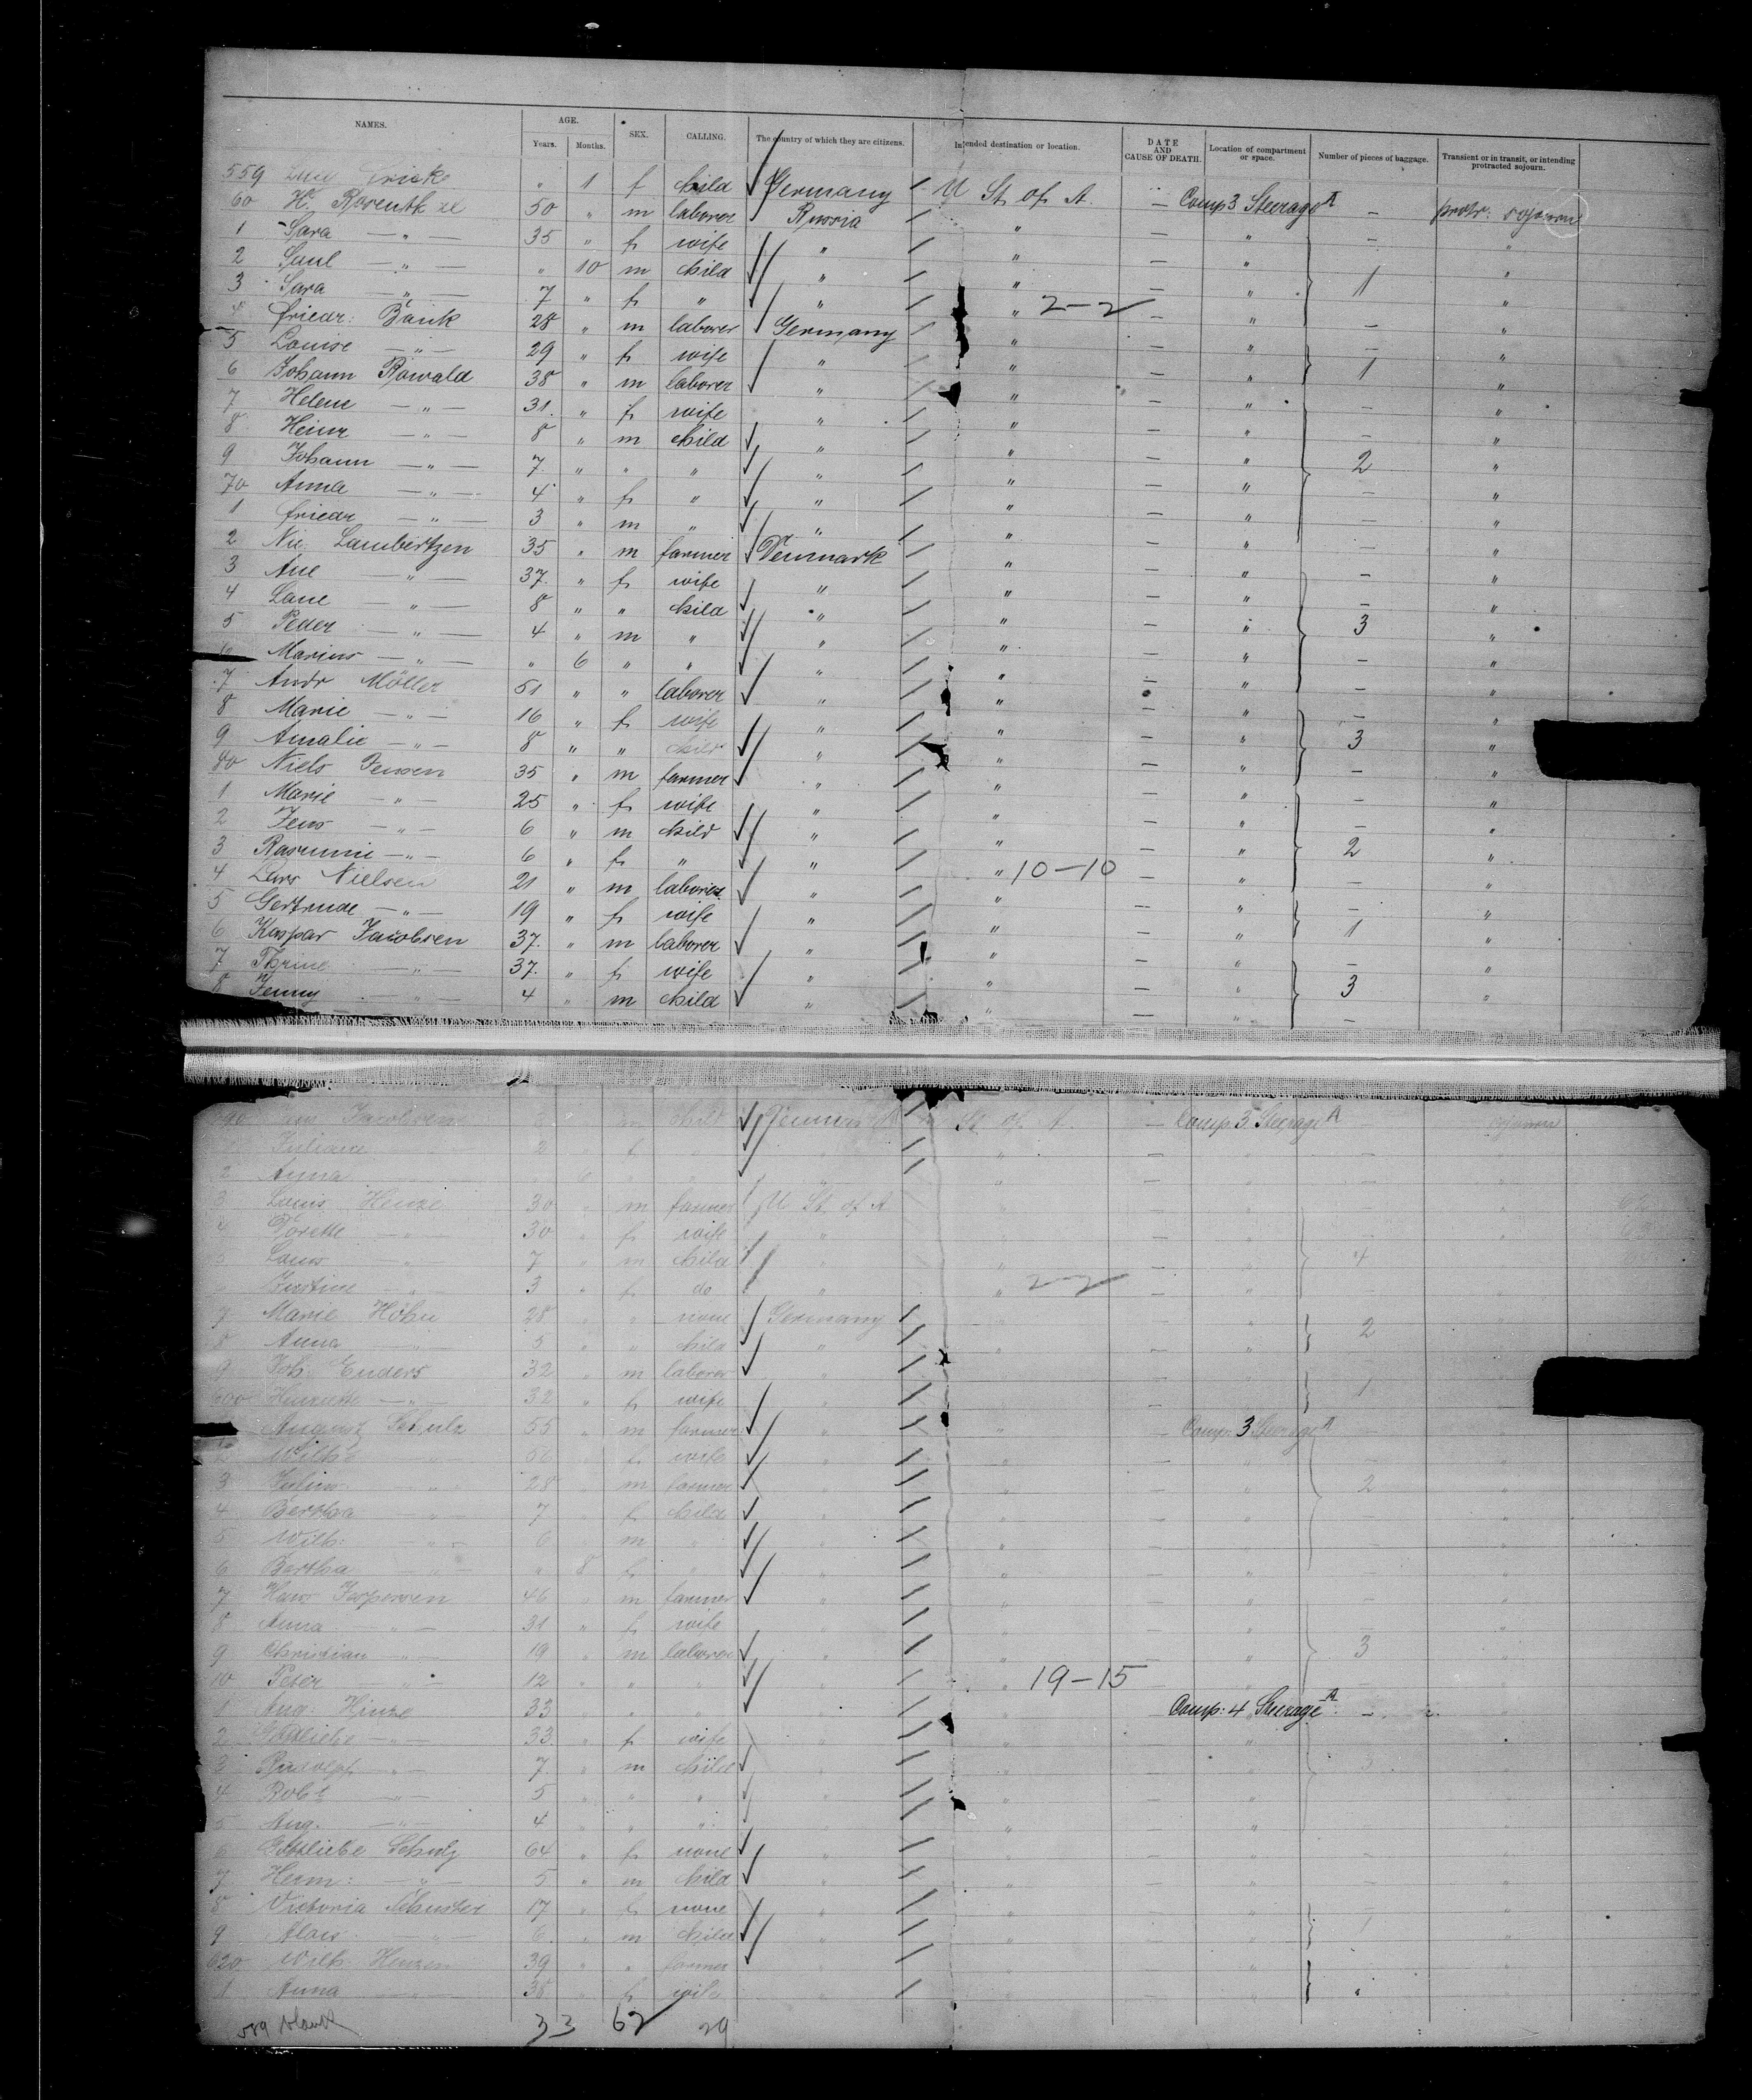 NAMES. AGE. SEX. CALLING. The country of which they are citizens. Intended destination or location. DATE AND CAUSE OF DEATH. Location of compartment or space. Number of pieces of baggage. Transient or in transit, or intending protracted sojourn.
Years. Months.
559 " 1 f child Germany U St. of A. — Comp 3 Steerage A — protr: sojourn
60 H. 50 " m laborer Russia " — " — "
1 Sara — " — 35 " f wife " " — "
2 Saul — " — " 10 m child " " — " 1 "
3 Sara — " — 7 " f " " " 2-2 — " "
4 Friedr: Bänk 28 " m laborer Germany " — " — "
5 Louise — " — 29 " f wife " " — " 1 "
6 Johann Rowald 38 " m laborer " " — " — "
7 Helene — " — 31. " f wife " " — " — "
8 Heinr — " — 8 " m child " " — " 2 "
9 Johann — " — 7. " " " " " — " — "
70 Anna — " — 4 " f " " " — " — "
1 Friedr — " — 3 " m " " " — " — "
2 Nic. Lambertzen 35 " m farmer Denmark " — " — "
3 Ane — " — 37. " f wife " " — " — "
4 Lane — " — 8 " " child " " — " 3 "
5 Peder — " — 4 " m " " " — " — "
6 Marius — " — " 6 " " " " — " — "
7 Andr Möller 51 " " laborer " " — " — "
8 Marie — " — 16 " f wife " " — " 3 "
9 Amalie — " — 8 " " child " " — " — "
80 Niels Jensen 35 " m farmer " " — " — "
1 Marie — " — 25 " f wife " " — " — "
2 Jens — " — 6 " m child " " — " 2 "
3 Rasmine — " — 6 " f " " " 10-10 — " — "
4 Lars Nielsen 21 " m laborer " " — " — "
5 Gertrude — " — 19 " f wife " " — " 1 "
6 Kaspar Jacobsen 37. " m laborer " " — " — "
7 Thrine — " — 37. " f wife " " — " 3 "
8 Jenny — " — 4 " m child " " — " — "
Jacobsen child Denmark St. of A. — Comp 3 Steerage A — sojourn
Juliane 2 " f " " " — " — "
2 Anna 6 " " " " — " — "
3 Louis Heinze 30 " m farmer U St. of A " — " — "
4 Dorette — " — 30 " f wife " " — " — "
5 Louis — " — 7 " m child " " — " 4 "
Justine " 3 " f do " " 2-2 — " — "
7 Marie Höhn 28 " " none Germany " — " 2 "
8 Anna — " — 5 " " child " " — " "
9 Joh. Enders 32 " m laborer " " — " 1 "
600 Henriette — " — 32 " f wife " " — " "
August Schulz 55 " m farmer " " — Comp. 3 Steerage A — "
2 — " — 56 " f wife " " — " — "
3 Julius — " — 28 " m farmer " " — " 2 "
4 Bertha — " — 7 " f child " " — " — "
5 Wilh: — " — 6 " m " " " — " — "
6 Bertha — " — " 8 f " " " — " — "
7 Hans Jespersen 46 " m farmer " " — " — "
8 Anna — " — 31 " f wife " " — " — "
9 Christian — " — 19 " m laborer " " — " 3 "
10 Peter — " — 12 " " " " " 19-15 — " — "
1 Aug: Hinze 33 " " " " " Comp: 4 Steerage A — "
2 Gottliebe — " — 33. " f wife " " — " — "
3 Rudolph — " — 7. " m child " " — " 3 "
4 Robt — " — 5 " " " " " — " — "
5 Aug. — " — 4 " " " " " — " — "
6 Gottliebe Schulz 64 " f none " " — " — "
7 Herm: — " — 5 " m child " " — " — "
8 Victoria Schuster 17 " f none " " — " — "
9 Alois — " — 6. " m child " " — " 1 "
620 Wilh. 39 " " farmer " " — " — "
1 Anna — " — 38 " f wife " " — " "
589 blank 33 62 29